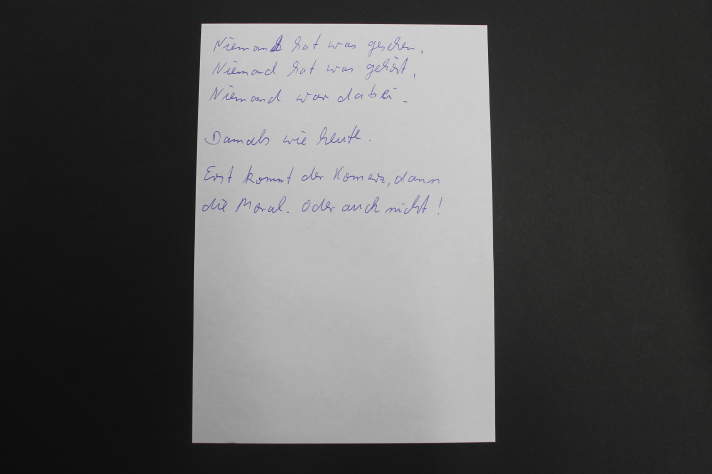 Niemand hat was gesehen,
Niemand hat was gehört,
Niemand war dabei.
Damals wie heute.
Erst kommt der Komerz, dann
die Moral. Oder auch nicht!